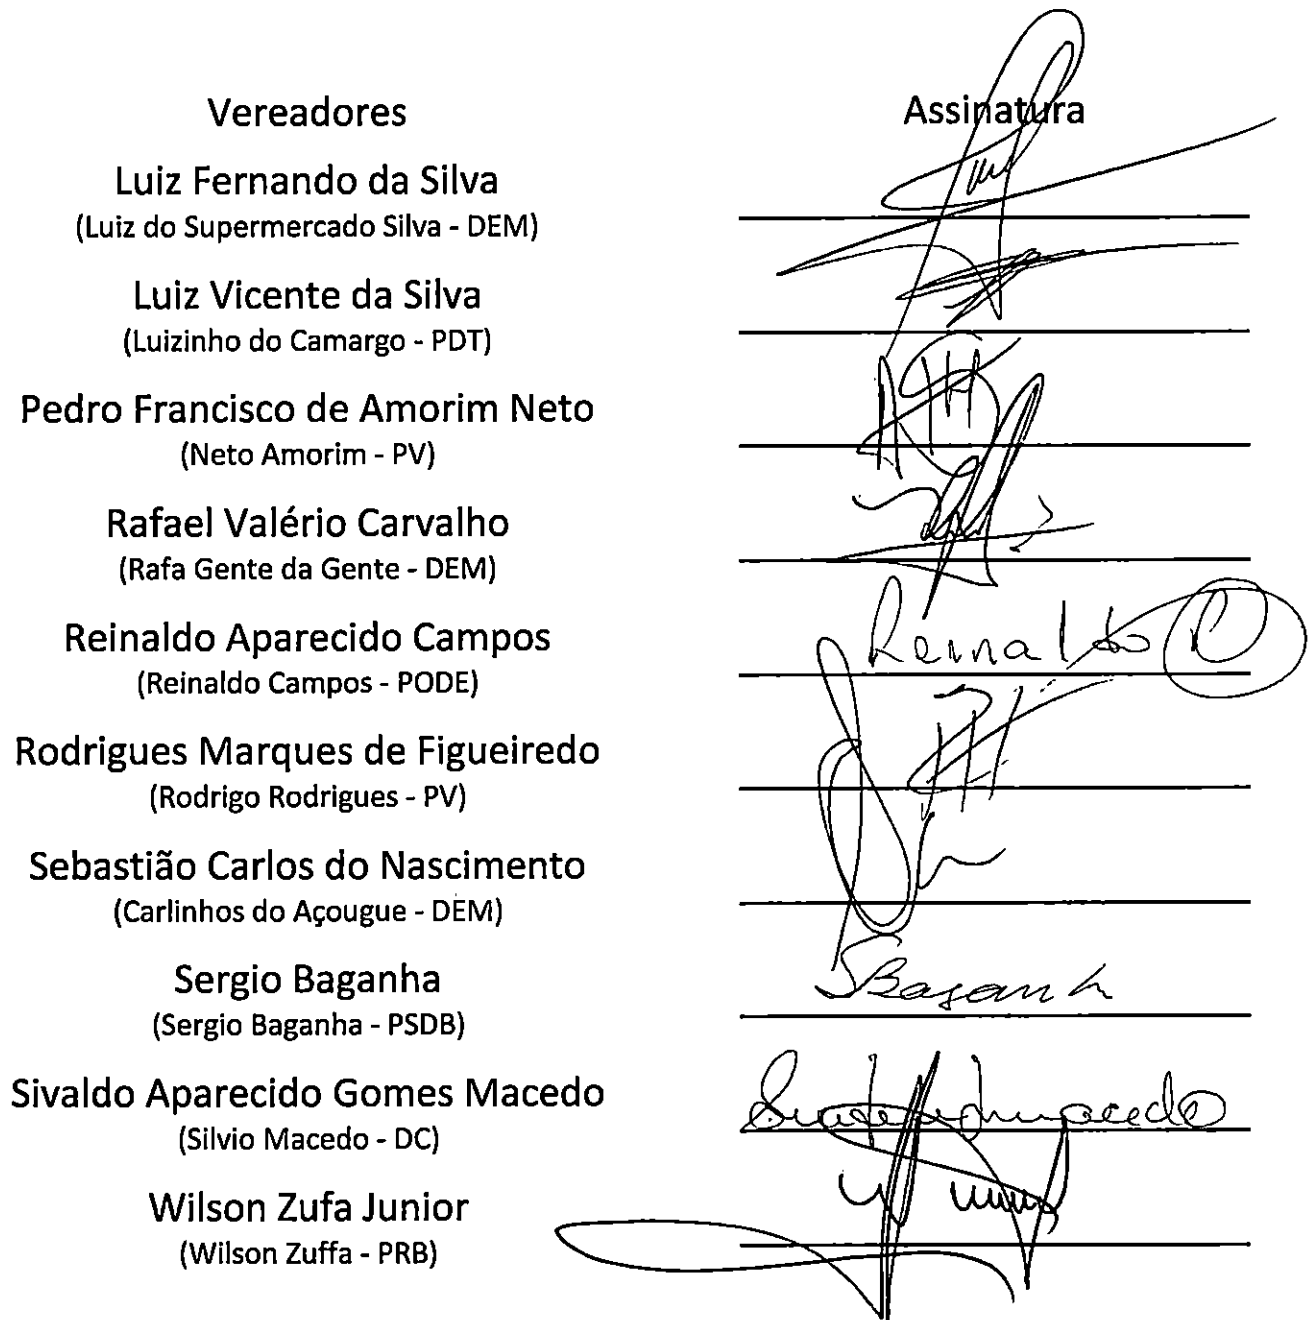 Vereadores Assinatura
Luiz Fernando da Silva
(Luiz do Supermercado Silva - DEM)
Luiz Vicente da Silva
(Luizinho do Camargo - PDT)
Pedro Francisco de Amorim Neto
(Neto Amorim - PV)
Rafael Valério Carvalho
(Rafa Gente da Gente - DEM)
Reinaldo Aparecido Campos
Reinaldo
(Reinaldo Campos - PODE)
Rodrigues Marques de Figueiredo
(Rodrigo Rodrigues - PV)
Sebastião Carlos do Nascimento
(Carlinhos do Açougue - DEM)
Sergio Baganha
SBaganh
(Sergio Baganha - PSDB)
Sivaldo Aparecido Gomes Macedo
(Silvio Macedo - DC)
Wilson Zufa Junior
(Wilson Zuffa - PRB)